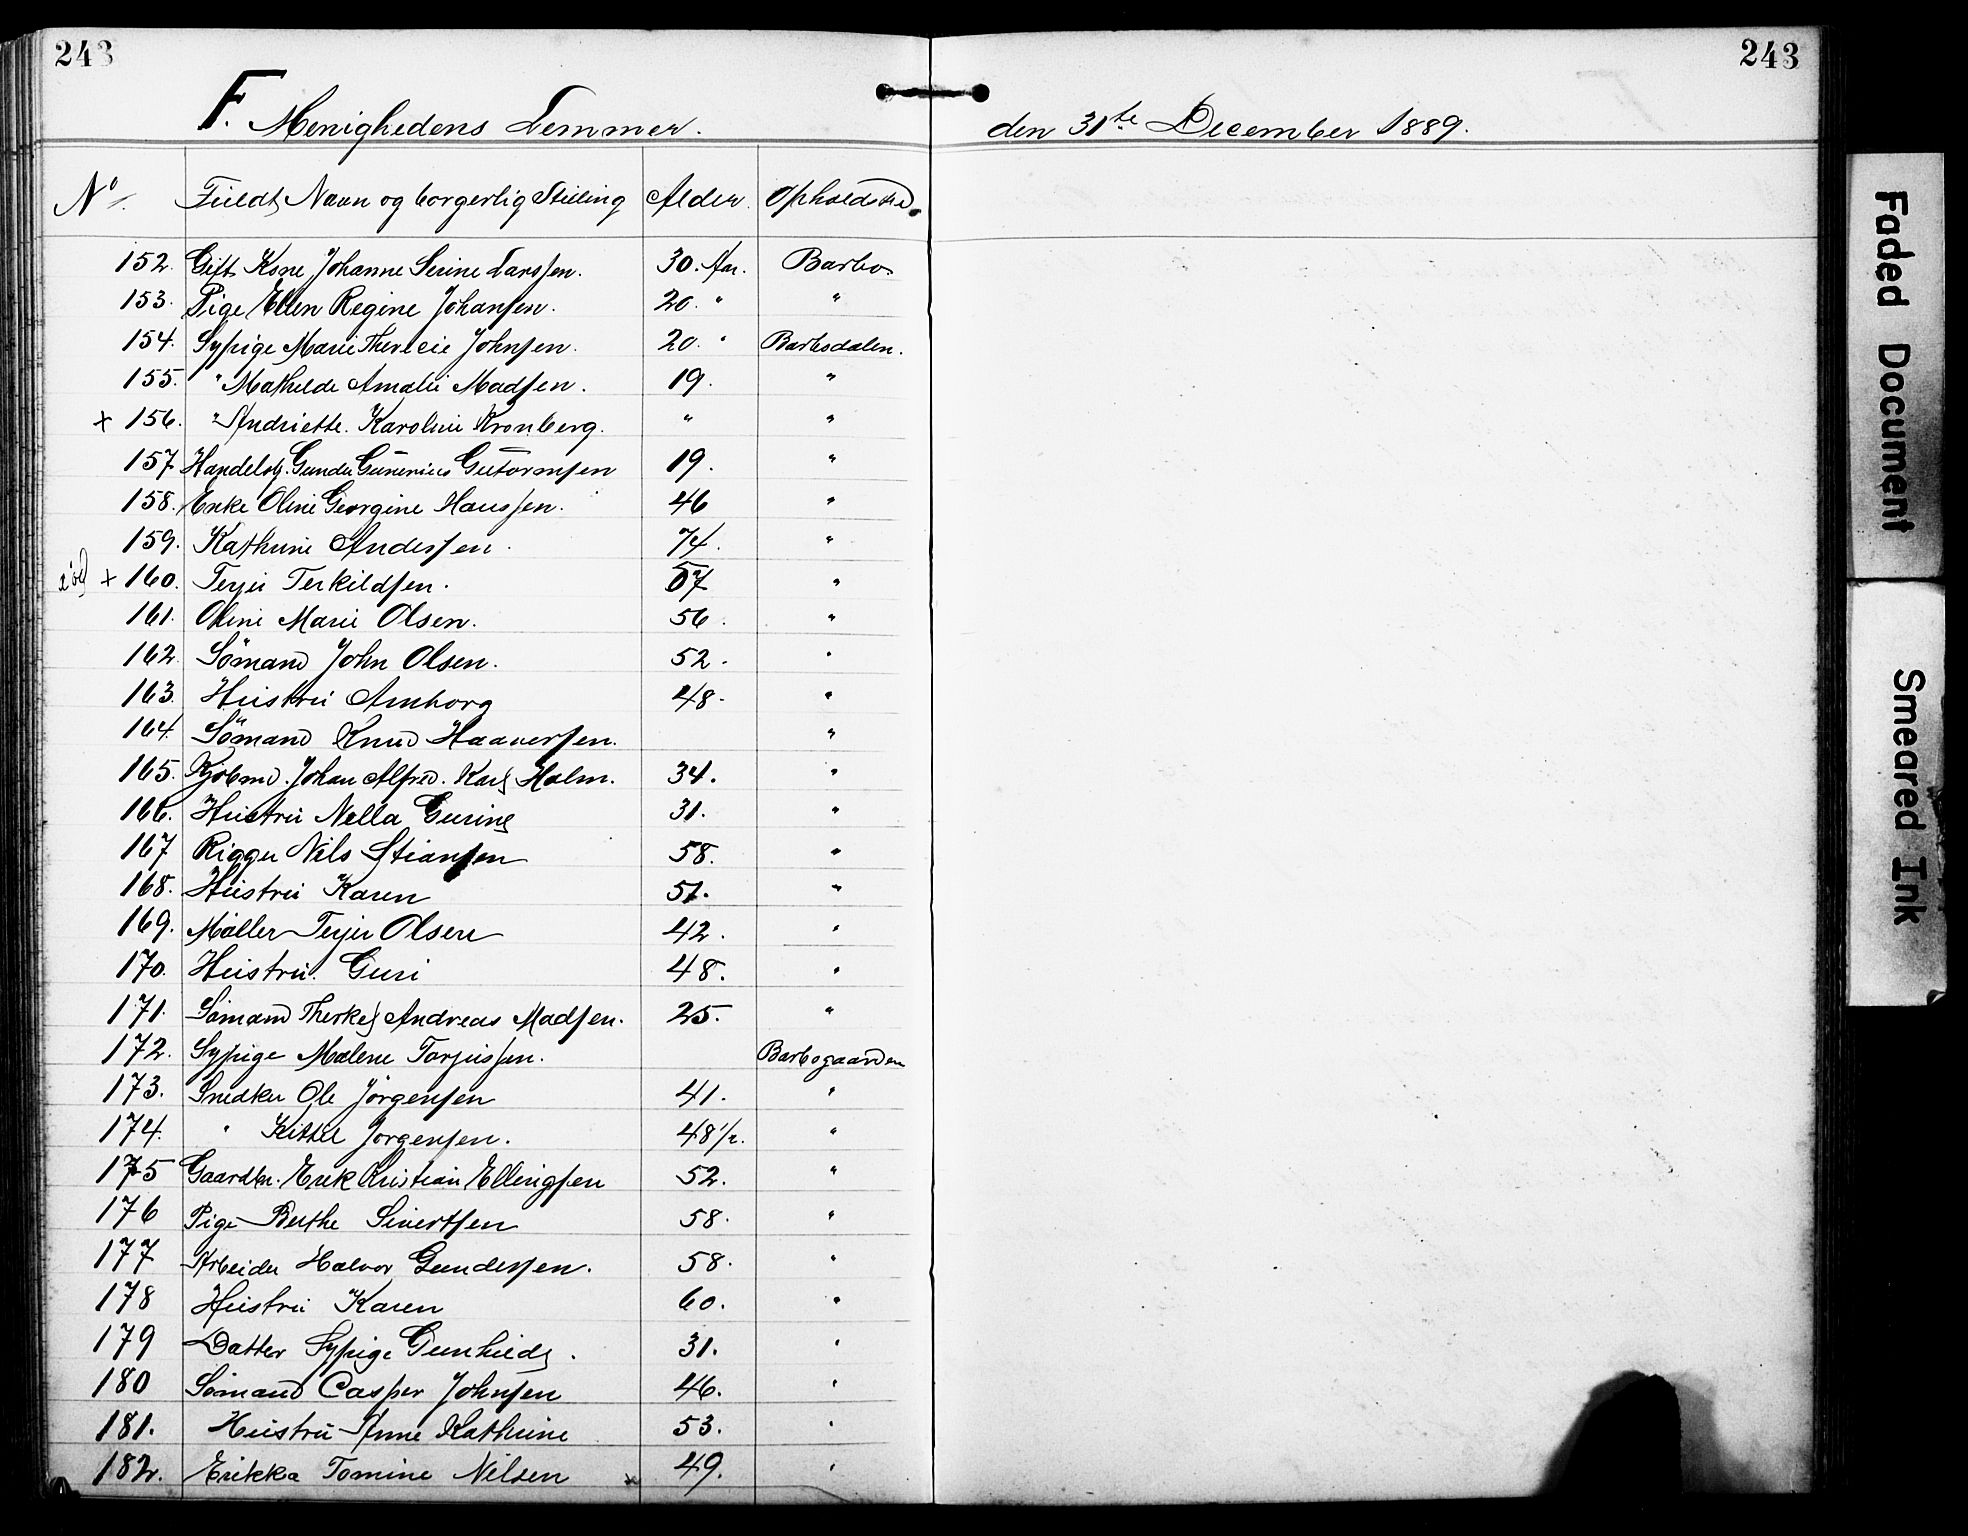 243
243
F. Menighedens Lemmer.
den 31te December 1889.
No
Fuldt Navn og borgerlig Stilling
Alder.
Opholdsted.
152. Gift Kone Johanne Serine Larssen. 30. Aar. Barbo.
153. Pige Ellen Regine Johansen. 20. " "
154. Sypige Marie Therecie Johnsen. 20. " Barbodalen.
155. " Mathilde Amalie Madsen. 19. "
+ 156. " Andriette. Karoline Kronberg. " "
157 Handelsb. Gunder Gunerius Guttormsen 19. "
158. Enke Oline Georgine Hanssen. 46 "
159. Kathrine Anderssen. 74. "
+ 160. Terjer Terkildsen. 57 "
161. Oline Marie Olsen. 56. "
162. Sömand John Olsen. 52. "
163. Hustru Amborg 48. "
164. Sömand Knud Haaversen. "
165. Kjöbmd. Johan Alfred. Karl Holm. 34. "
166. Hustru Nella Gurine 31. "
167 Rigger Nils Stiansen 58. "
168. Hustru Karen 51. "
169. Møller Terjer Olsen 42. "
170. Hustru. Guri 48. "
171. Sömand Therkel Andreas Madsen. 25. "
172. Sypige Malene Torjussen. Barbogaarden
173. Snedker Ole Jörgensen 41. "
174. " Kittel Jorgensen. 48 1/2. "
175 Gaardbr. Erik Kristian Ellingsen 52. "
176 Pige Berthe Sivertsen 58. "
177 Arbeider Halvor Gundersen. 58. "
178 Hustru Karen 60. "
179 Datter Sypige Gunhild. 31. "
180 Sömand Casper Johnsen 46. "
181. Hustru Anne Kathrine 53. "
182. Erikka Tomine Nilsen 49. "
Faded Document
Smeared Ink